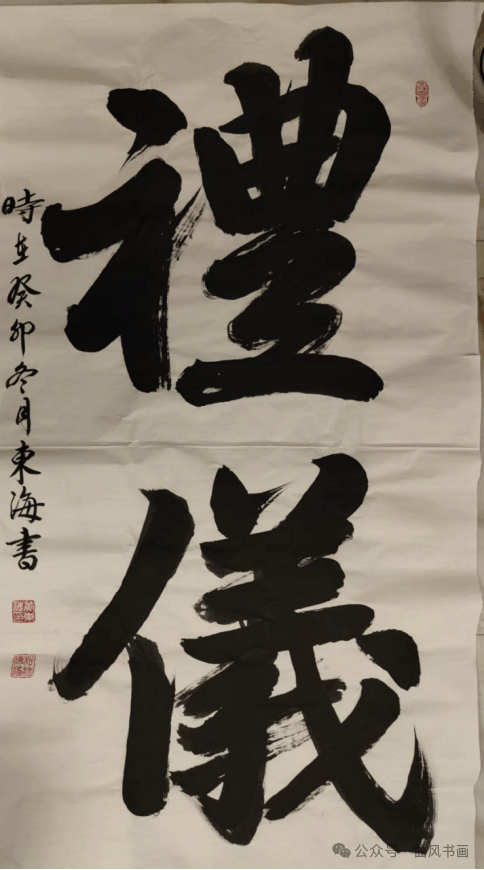 禮儀
時在癸卯冬月東海書
公众号·曲风书画